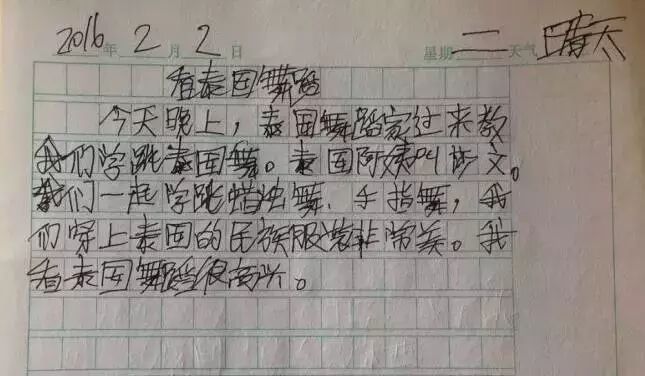 2016年2月2日 星期二 天气 晴天
看泰国舞蹈
今天晚上，泰国舞蹈家过来教
我们学跳泰国舞。泰国阿姨叫沙文。
我们一起学跳蜡烛舞、手指舞，我
们穿上泰国的民族服装非常美。我
看泰国舞蹈很高兴。